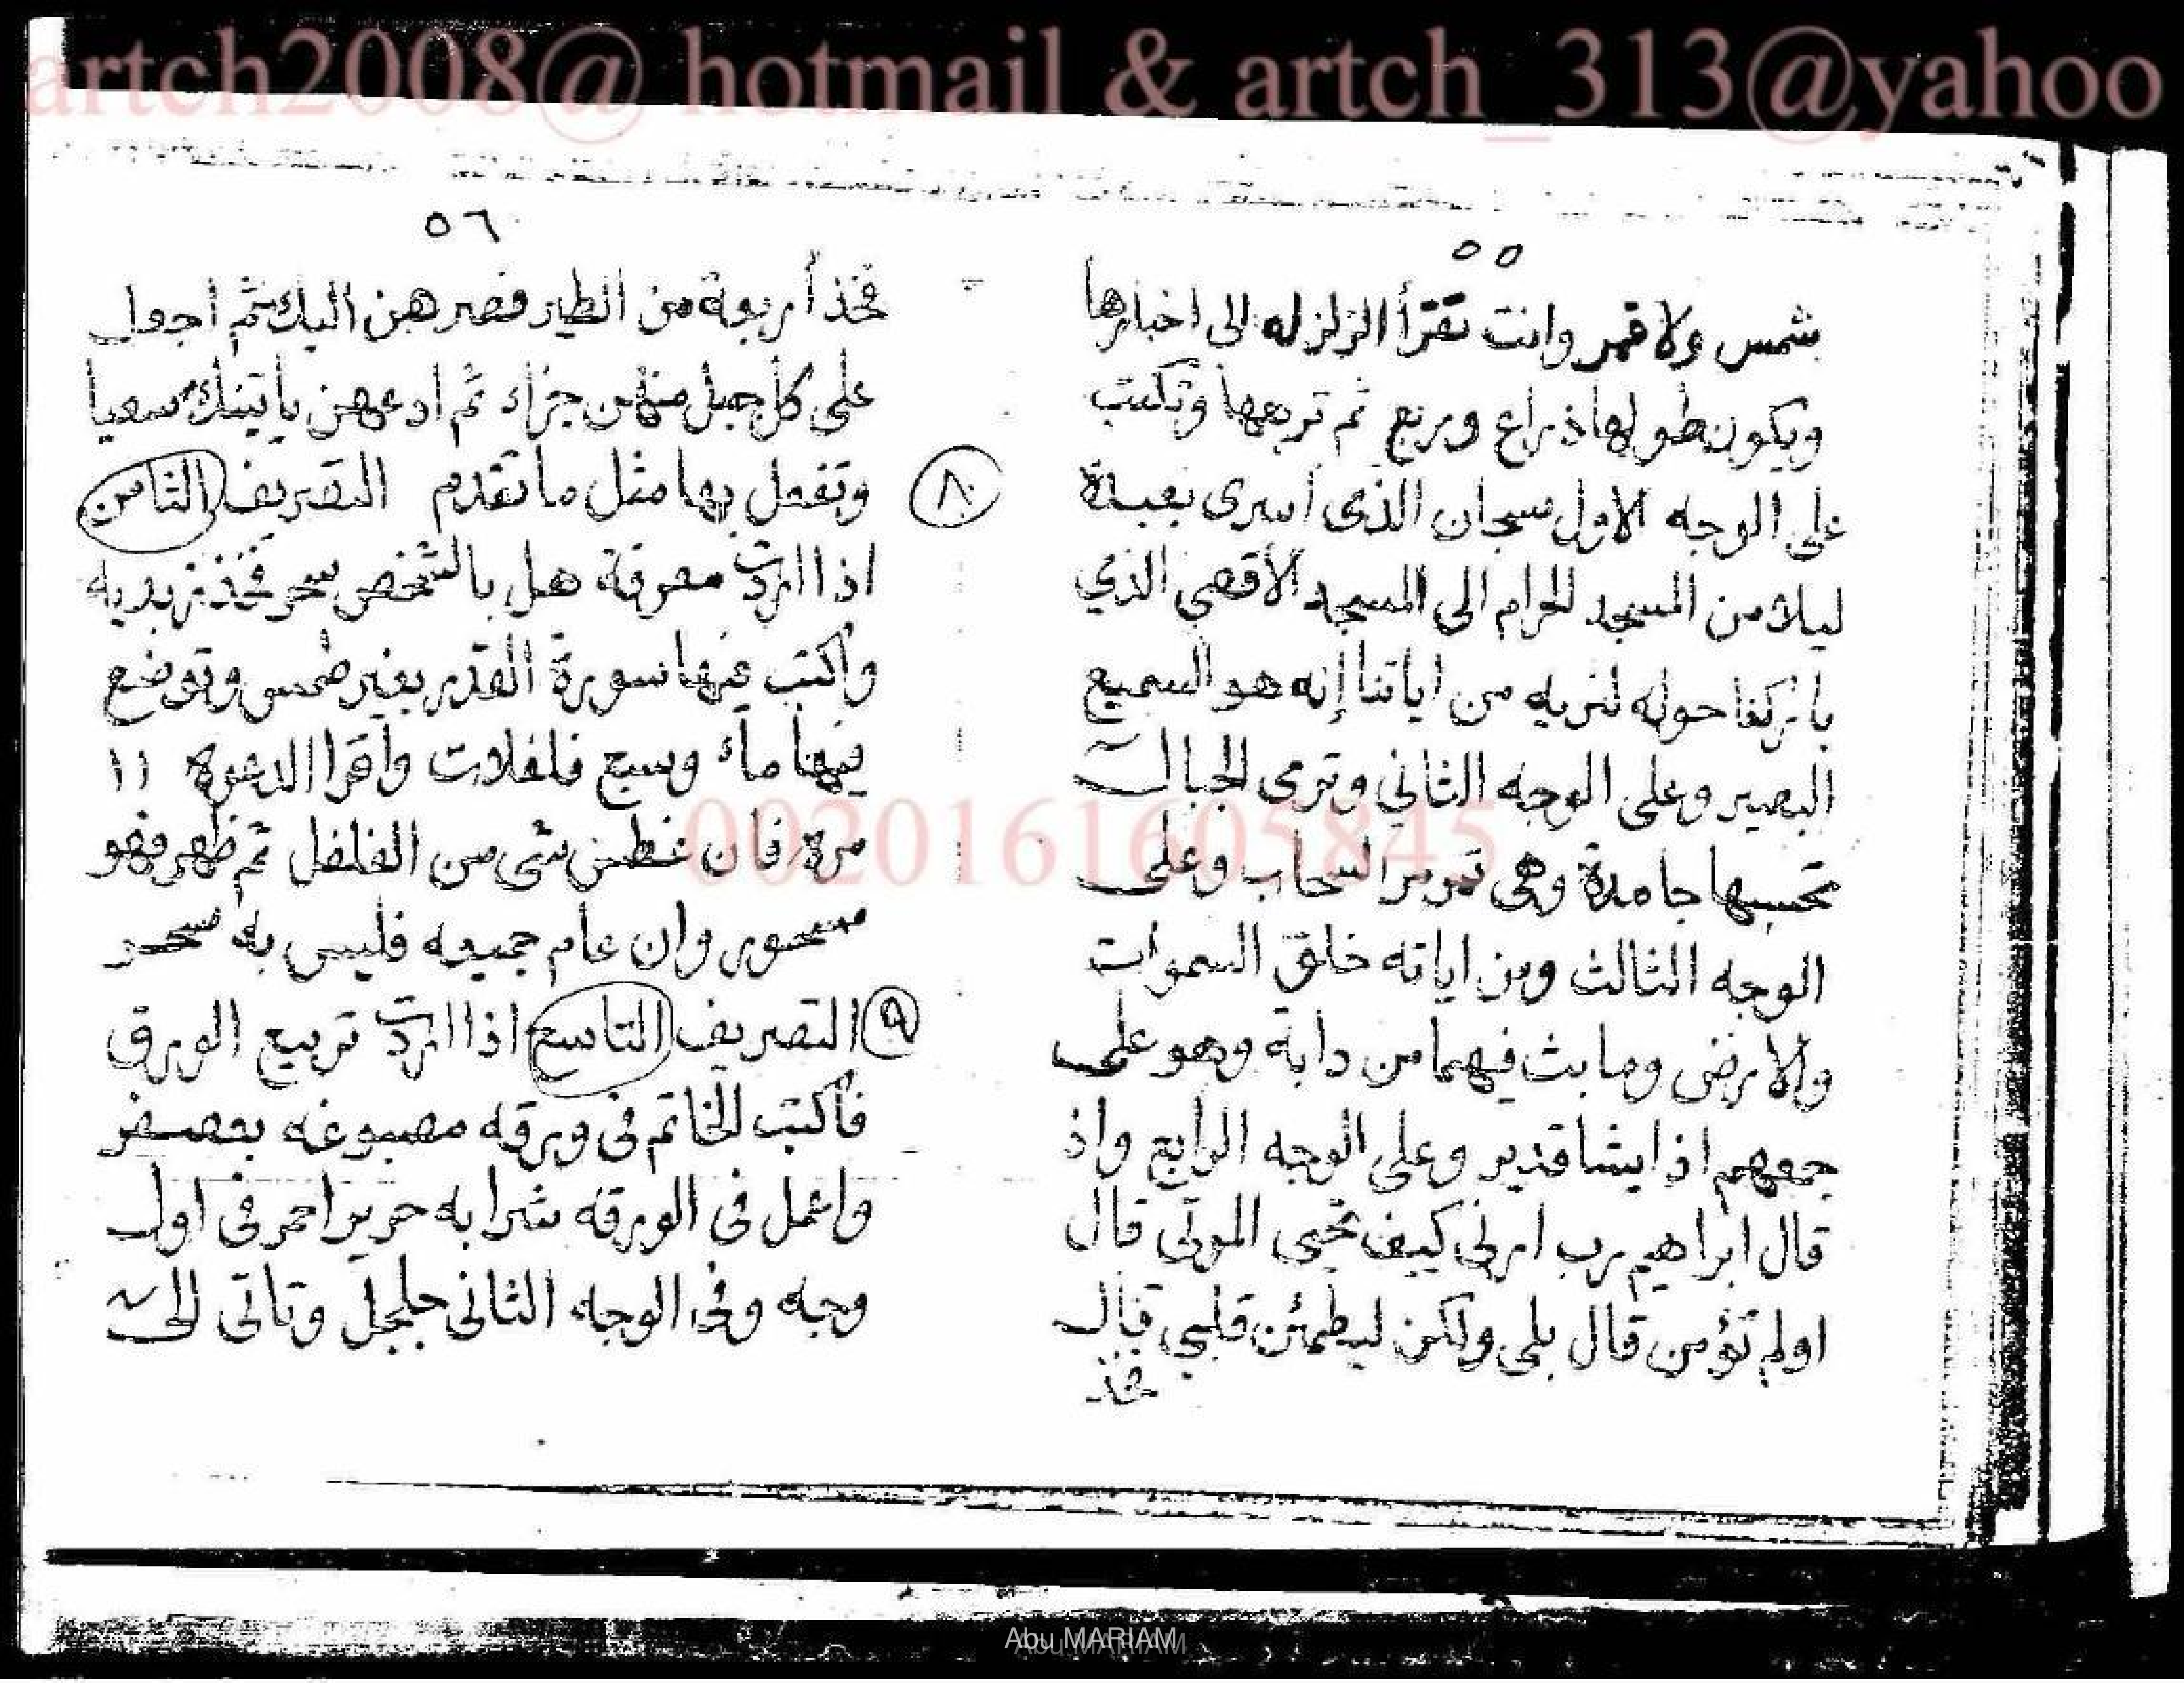 artch2008@ hotmail & artch_313@yahoo
٥٥
شمس ولا قمر وانت تقرأ الزلزله الى اخبارها
ويكون طولها ذراع وربع ثم تربعها وتكتب
على الوجه الاول سبحان الذى أسرى بعبدة
ليلا من المسجد الحرام الى المسجد الأقصى الذي
باركنا حوله لنريه من اياتنا إنه هو السميع
البصير وعلى الوجه الثاني وترى الجبال
تحسبها جامدة وهى تمر مر السحاب وعلى
الوجه الثالث ومن اياته خلق السموات
والارض وما بث فيهما من دابة وهو على
جمعهم اذا يشا قدير وعلى الوجه الرابع واذ
قال ابراهيم رب ارنى كيف تحيى الموتى قال
اولم تؤمن قال بلى ولكن ليطمئن قلبى قال
فخذ
٥٦
فخذ أربعة من الطير فصرهن اليك ثم اجعل
على كل جبل منهن جزاء ثم ادعهن يأتينك سعيا
وتفعل بها مثل ما تقدم التصريف الثامن
٨
اذا اردت معرفة هل بالشخص سحر فخذ زبديه
وأكتب فيها سورة القدر بغير طمس وتوضع
فيها ماء وسبع فلفلات وأقرا الدعوة ١١
مرة فان غطس شى من الفلفل ثم ظهر فهو
مسحور وان عام جميعه فليس به سحر
٩ التصريف التاسع اذا اردت تربيع الورق
فأكتب الخاتم فى ورقه مصبوغه بعصفر
واعمل فى الورقه شرابه حرير احمر فى اول
وجه وفى الوجه الثانى جلجل وتاتى الى
0020161605845
Abu MARIAM